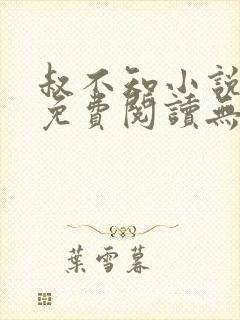 叔不知小說
免費閱讀無
葉雪暮